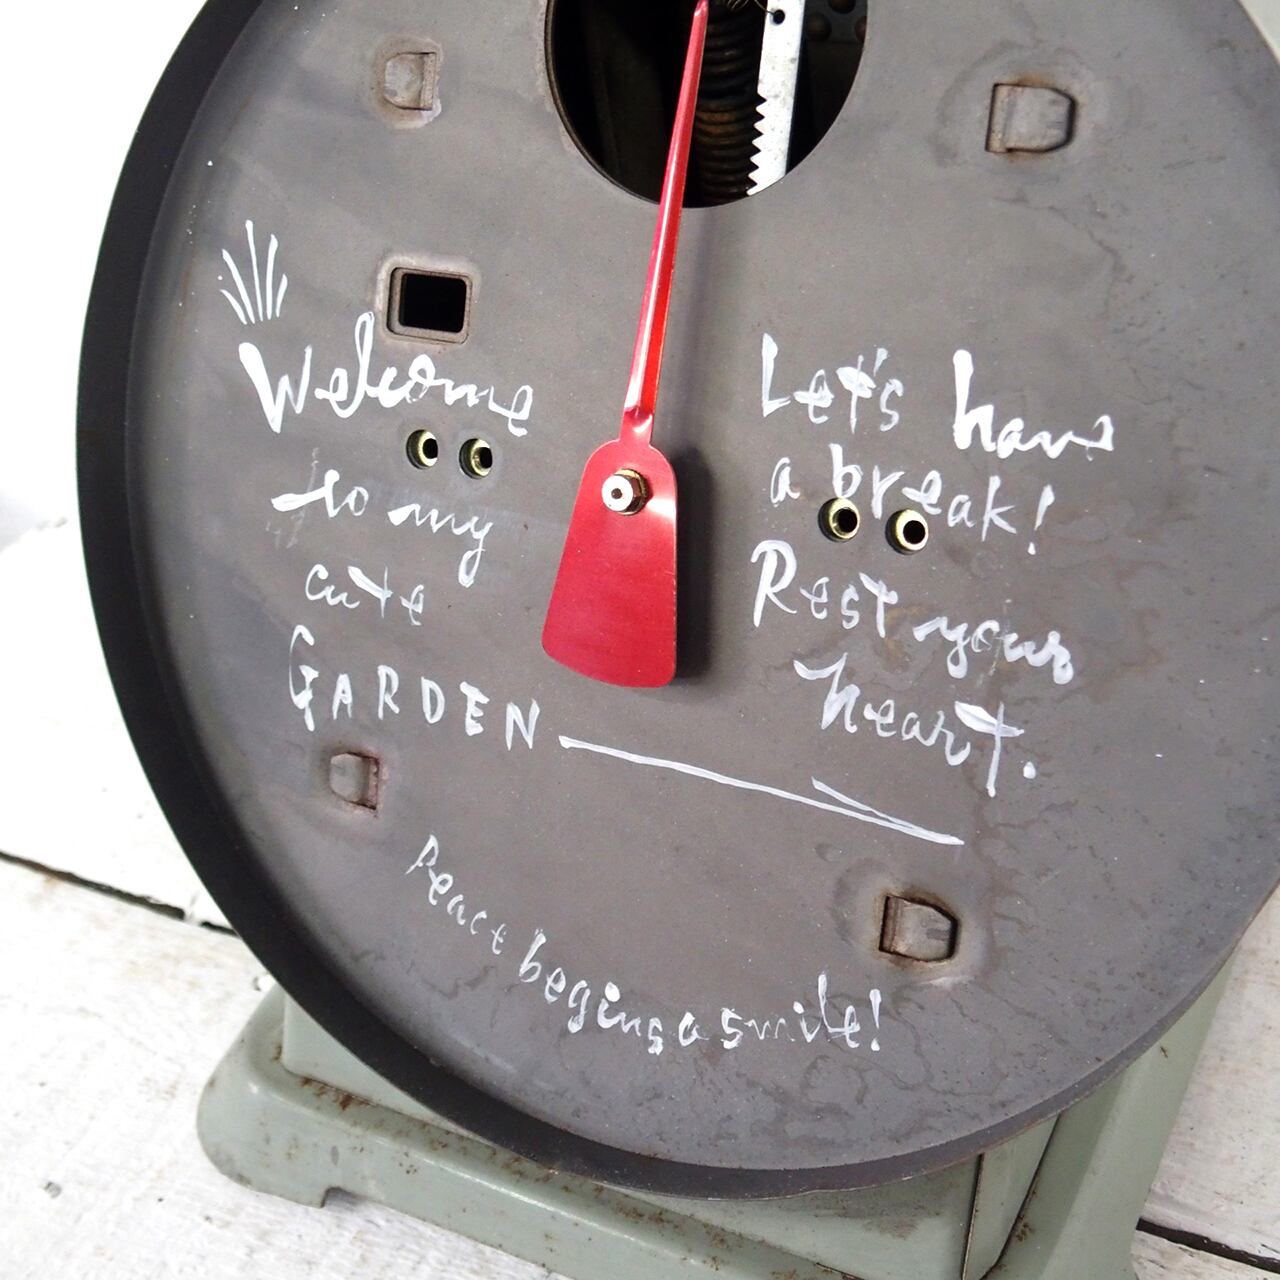 Welcome
to my
cute
GARDEN
Let's have
a break!
Rest your
heart.
Peace begins a smile!